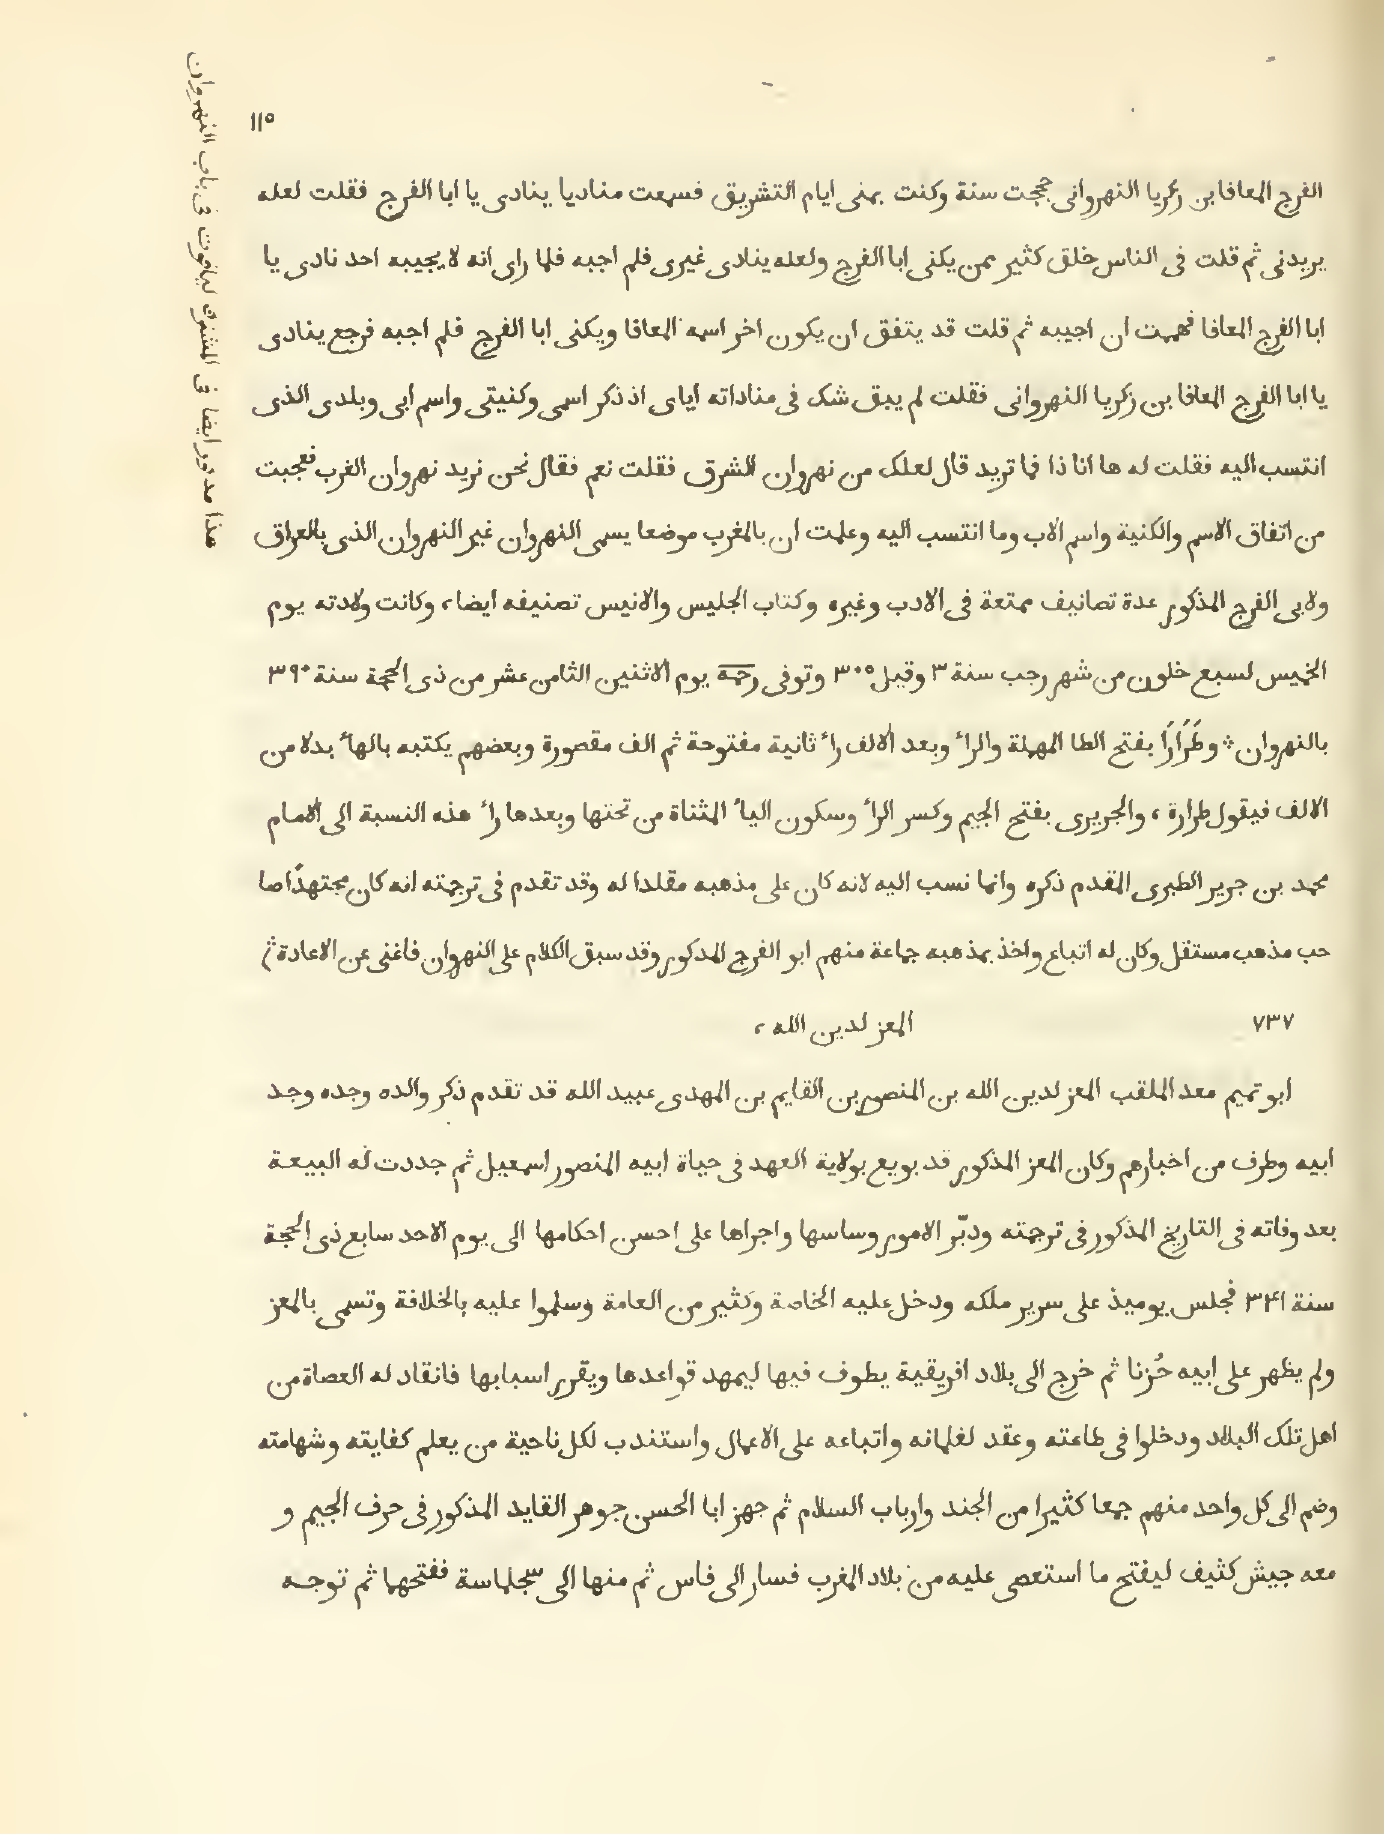 ١١٥
الفرج المعافا بن زكريا النهرواني حججت سنة وكنت بمنى ايام التشريق فسمعت مناديا ينادى يا ابا الفرج فقلت لعله
يريدنى ثم قلت فى الناس خلق كثير ممن يكنى ابا الفرج ولعله ينادى غيرى فلم اجبه فلما راى انه لا يجيبه احد نادى يا
ابا الفرج المعافا فهممت ان اجيبه ثم قلت قد يتفق ان يكون اخر اسمه المعافا ويكنى ابا الفرج فلم اجبه فرجع ينادى
يا ابا الفرج المعافا بن زكريا النهروانى فقلت لم يبق شك فى مناداته اياى اذ ذكر اسمى وكنيتى واسم ابى وبلدى الذى
انتسب اليه فقلت له ها انا ذا فما تريد قال لعلك من نهروان الشرق فقلت نعم فقال نحن نريد نهروان الغرب فعجبت
من اتفاق الاسم والكنية واسم الاب وما انتسب اليه وعلمت ان بالمغرب موضعا يسمى النهروان غير النهروان الذى بالعراق
ولابى الفرج المذكور عدة تصانيف ممتعة فى الادب وغيره وكتاب الجليس والانيس تصنيفه ايضا، وكانت ولادته يوم
الخميس لسبع خلون من شهر رجب سنة ٣ وقيل ٣٠٥ وتوفى رحمه يوم الاثنين الثامن عشر من ذى الحجة سنة ٣٩٠
بالنهروان * وطَرَارَا بفتح الطا المهملة والراء وبعد الالف راء ثانية مفتوحة ثم الف مقصورة وبعضهم يكتبه بالهاء بدلا من
الالف فيقول طرارة، والجريرى بفتح الجيم وكسر الراء وسكون الياء المثناة من تحتها وبعدها راء هذه النسبة الى الامام
محمد بن جرير الطبرى المقدم ذكره وانما نسب اليه لانه كان على مذهبه مقلدا له وقد تقدم فى ترجمته انه كان مجتهدًا صا
حب مذهب مستقل وكان له اتباع واخذ بمذهبه جماعة منهم ابو الفرج المذكور وقد سبق الكلام على النهروان فاغنى عن الاعادة
٧٣٧ المعز لدين الله،
ابو تميم معد الملقب المعز لدين الله بن المنصور بن القايم بن المهدى عبيد الله قد تقدم ذكر والده وجده وجد
ابيه وطرف من اخبارهم وكان المعز المذكور قد بويع بولاية العهد فى حياة ابيه المنصور اسمعيل ثم جددت له البيعة
بعد وفاته فى التاريخ المذكور فى ترجمته ودبّر الامور وساسها واجراها على احسن احكامها الى يوم الاحد سابع ذى الحجة
سنة ٣٤١ فجلس يوميذ على سرير ملكه ودخل عليه الخاصة وكثير من العامة وسلموا عليه بالخلافة وتسمى بالمعز
ولم يظهر على ابيه حُزنا ثم خرج الى بلاد افريقية يطوف فيها ليمهد قواعدها ويقرر اسبابها فانقاد له العصاة من
اهل تلك البلاد ودخلوا فى طاعته وعقد لغلمانه واتباعه على الاعمال واستندب لكل ناحية من يعلم كفايته وشهامته
وضم الى كل واحد منهم جمعا كثيرا من الجند وارباب السلام ثم جهز ابا الحسن جوهر القايد المذكور فى حرف الجيم و
معه جيش كثيف ليفتح ما استعصى عليه من بلاد المغرب فسار الى فاس ثم منها الى سجلماسة ففتحها ثم توجه
هذا مذكور ايضا فى المشترك لياقوت فى باب النهروان